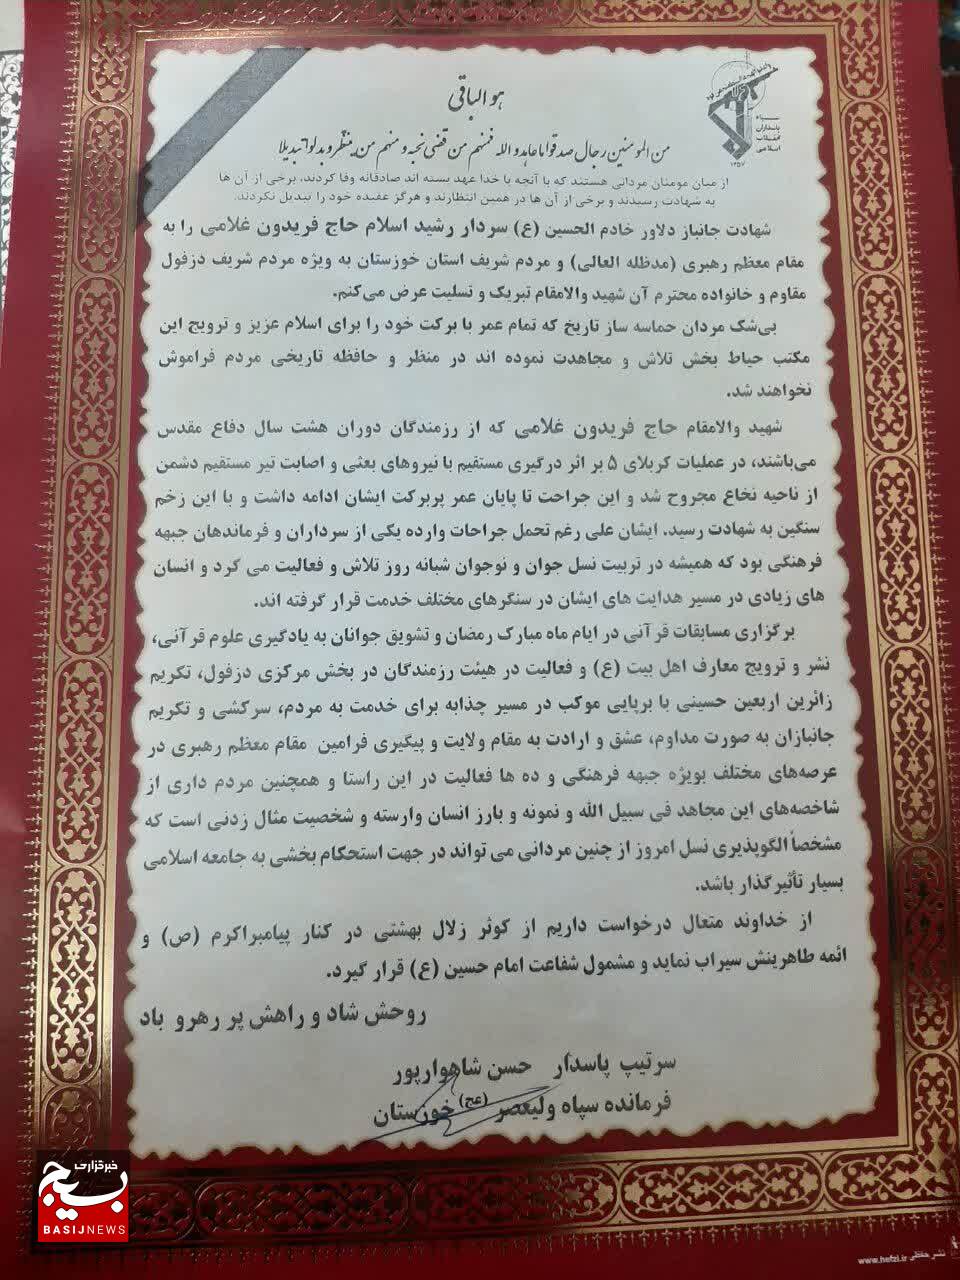 هو الباقی
سپاه
پاسداران
انقلاب
اسلامی
۱۳۵۷
من المومنین رجال صدقوا ما عاهدو الله فمنهم من قضی نحبه و منهم من ینتظر و بدلوا تبدیلا
از میان مومنان مردانی هستند که با آنچه با خدا عهد بسته اند صادقانه وفا کردند، برخی از آن ها
به شهادت رسیدند و برخی از آن ها در همین انتظارند و هرگز عقیده خود را تبدیل نکردند.
شهادت جانباز دلاور خادم الحسین (ع) سردار رشید اسلام حاج فریدون غلامی را به
مقام معظم رهبری (مدظله العالی) و مردم شریف استان خوزستان به ویژه مردم شریف دزفول
مقاوم و خانواده محترم آن شهید والامقام تبریک و تسلیت عرض می‌کنم.
بی‌شک مردان حماسه ساز تاریخ که تمام عمر با برکت خود را برای اسلام عزیز و ترویج این
مکتب حیاط بخش تلاش و مجاهدت نموده اند در منظر و حافظه تاریخی مردم فراموش
نخواهند شد.
شهید والامقام حاج فریدون غلامی که از رزمندگان دوران هشت سال دفاع مقدس
می‌باشند، در عملیات کربلای ۵ بر اثر درگیری مستقیم با نیروهای بعثی و اصابت تیر مستقیم دشمن
از ناحیه نخاع مجروح شد و این جراحت تا پایان عمر پربرکت ایشان ادامه داشت و با این زخم
سنگین به شهادت رسید. ایشان علی رغم تحمل جراحات وارده یکی از سرداران و فرماندهان جبهه
فرهنگی بود که همیشه در تربیت نسل جوان و نوجوان شبانه روز تلاش و فعالیت می کرد و انسان
های زیادی در مسیر هدایت های ایشان در سنگرهای مختلف خدمت قرار گرفته اند.
برگزاری مسابقات قرآنی در ایام ماه مبارک رمضان و تشویق جوانان به یادگیری علوم قرآنی،
نشر و ترویج معارف اهل بیت (ع) و فعالیت در هیئت رزمندگان در بخش مرکزی دزفول، تکریم
زائرین اربعین حسینی با برپایی موکب در مسیر چذابه برای خدمت به مردم، سرکشی و تکریم
جانبازان به صورت مداوم، عشق و ارادت به مقام ولایت و پیگیری فرامین مقام معظم رهبری در
عرصه‌های مختلف بویژه جبهه فرهنگی و ده ها فعالیت در این راستا و همچنین مردم داری از
شاخصه‌های این مجاهد فی سبیل الله و نمونه و بارز انسان وارسته و شخصیت مثال زدنی است که
مشخصاً الگوپذیری نسل امروز از چنین مردانی می تواند در جهت استحکام بخشی به جامعه اسلامی
بسیار تأثیرگذار باشد.
از خداوند متعال درخواست داریم از کوثر زلال بهشتی در کنار پیامبراکرم (ص) و
ائمه طاهرینش سیراب نماید و مشمول شفاعت امام حسین (ع) قرار گیرد.
روحش شاد و راهش پر رهرو باد
سرتیپ پاسدار حسن شاهوارپور
فرمانده سپاه ولیعصر (عج) خوزستان
خبرگزاری
بسیج
BASIJNEWS
نشر حفظی www.hefzi.ir